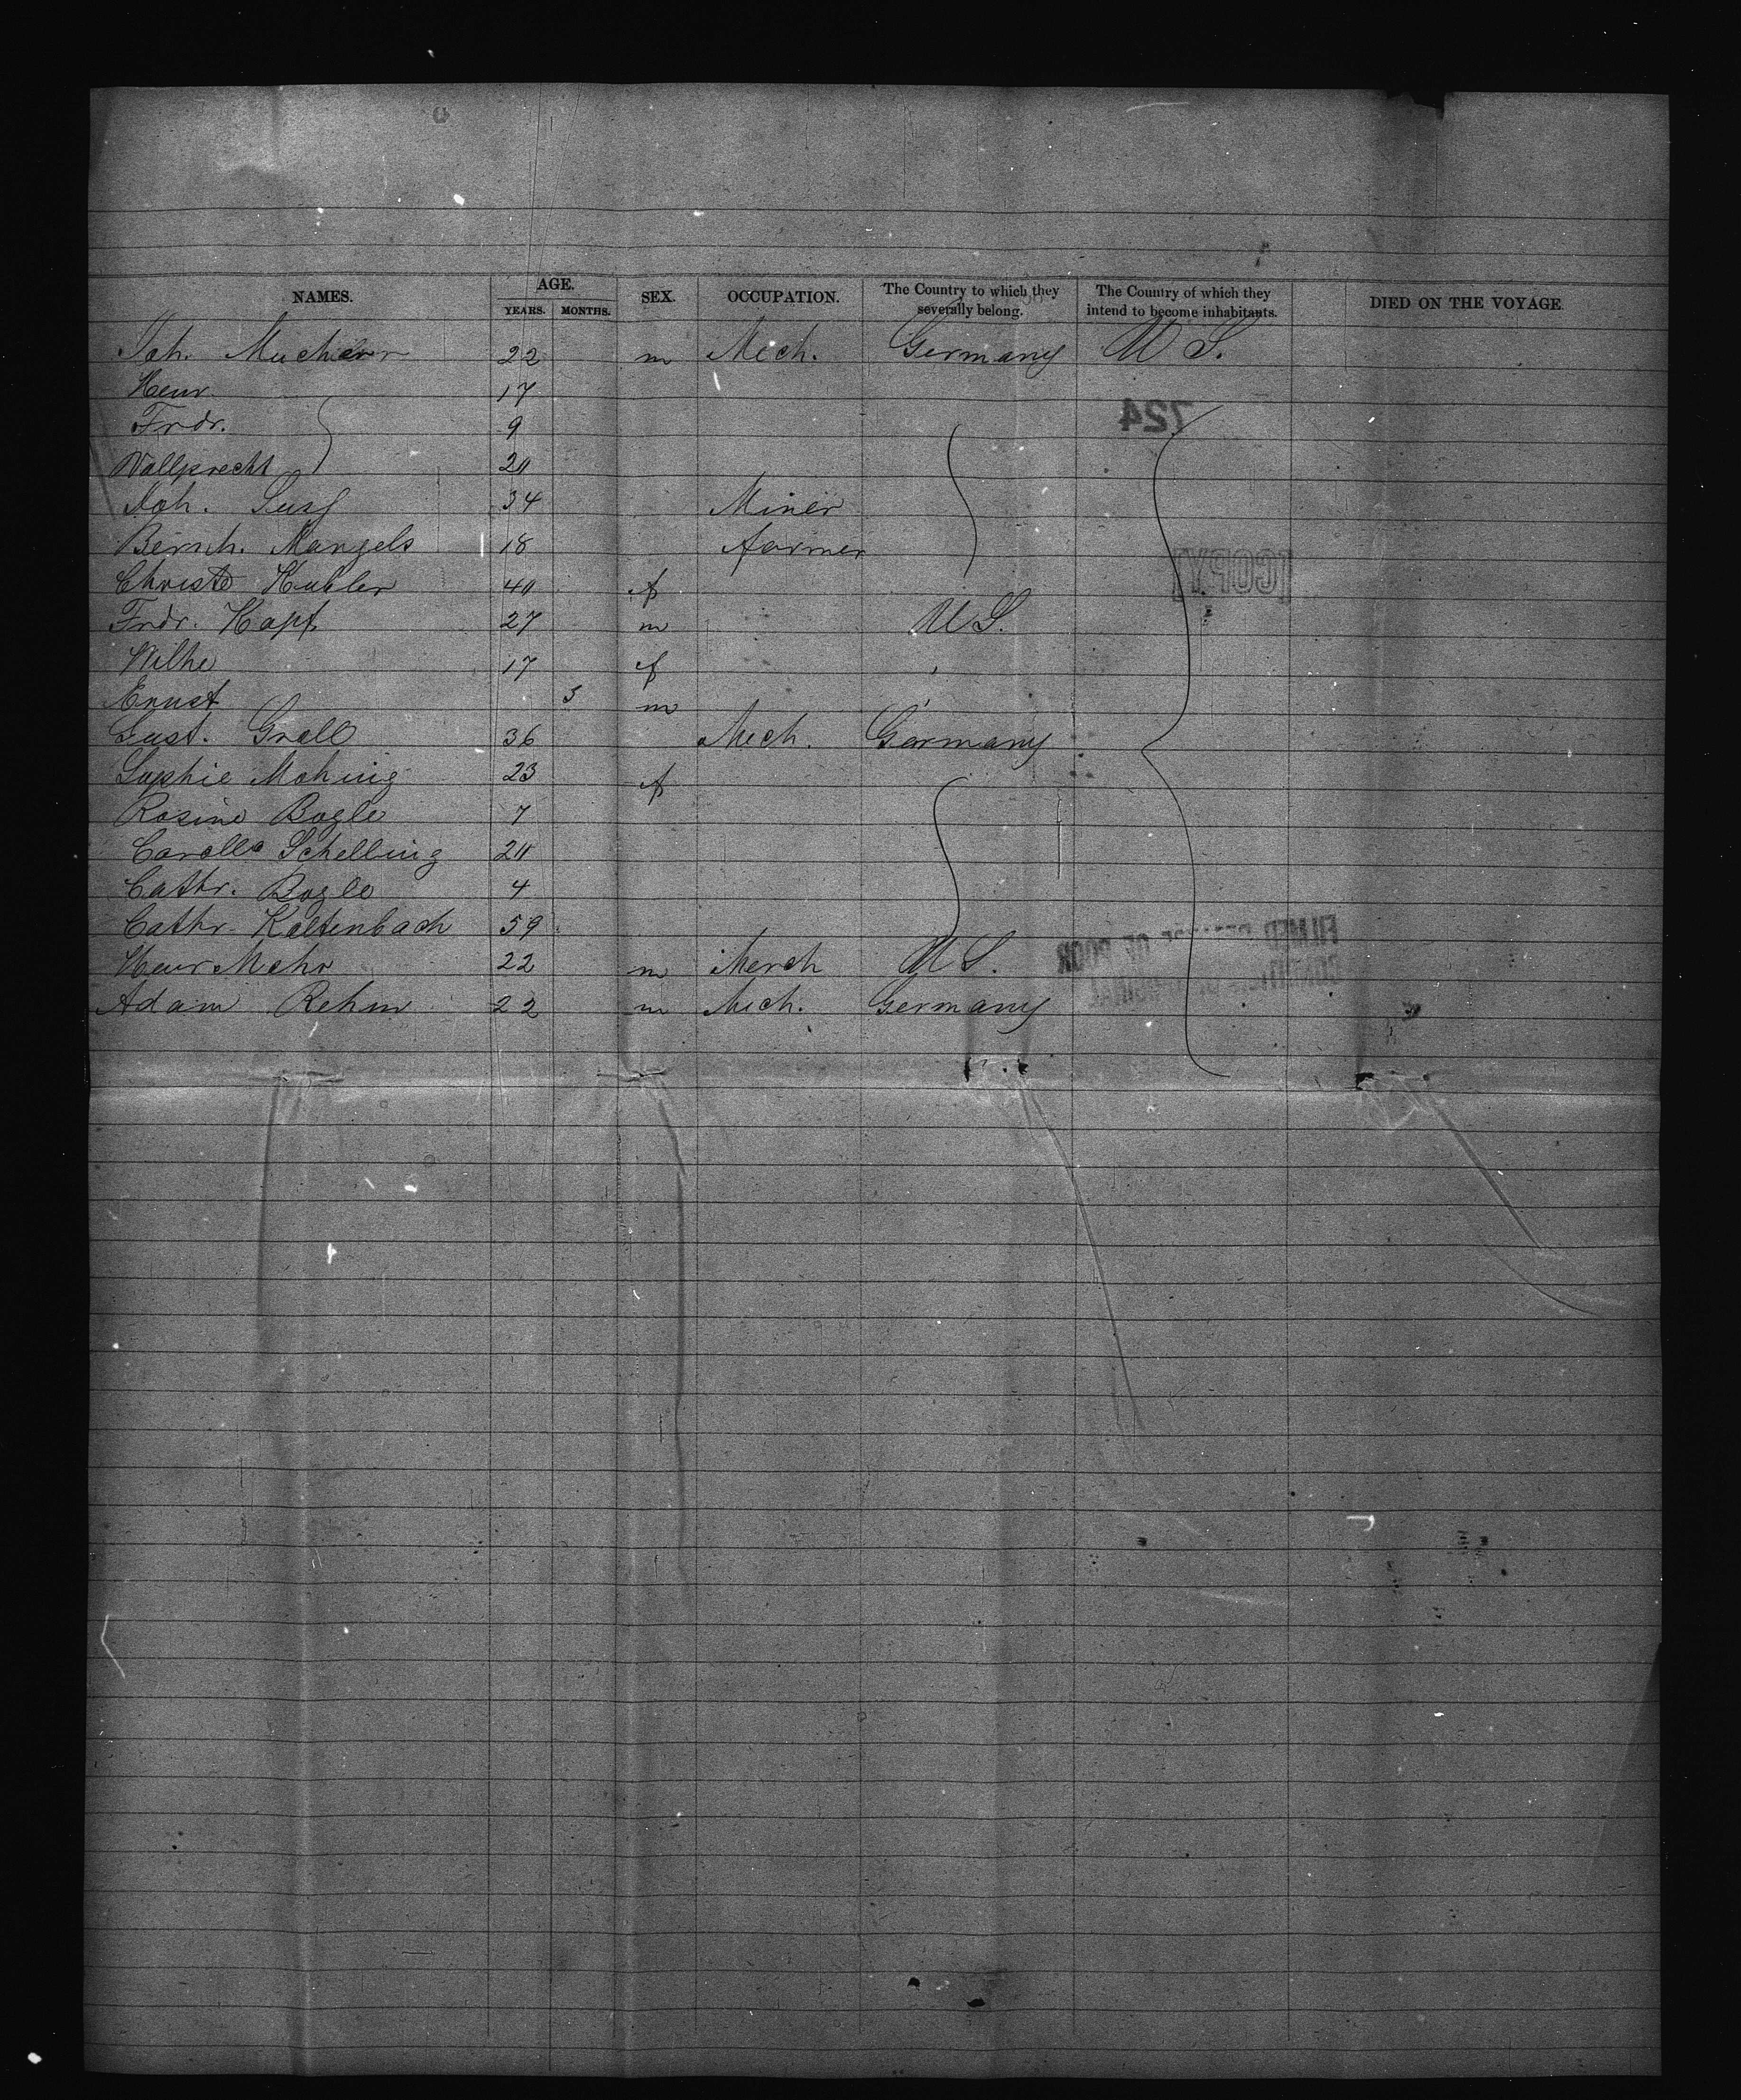 NAMES. AGE. YEARS. MONTHS. SEX. OCCUPATION. The Country to which they severally belong. The Country of which they intend to become inhabitants. DIED ON THE VOYAGE
Joh. 22 m Mech. Germany U S.
Henr. 17
Frdr. 9
Vollprecht 20
Joh. 34 Miner
Bernh. Mangels 18 farmer
Christe Kubler 40 f
Frdr. Kapf 27 m U S.
Wilhe 17 f "
Ernst 3 m "
Gust. Grell 36 Mech. Germany
Sophie Mohing 23 f
Rosine Bogle 7
Caroll Schelling 20
Cathr. Bogle 4
Cathr. Kaltenbach 59
Henr Mehr 22 m Merch U S.
Adam Rehm 22 m Mech. Germany
724
[COPY]